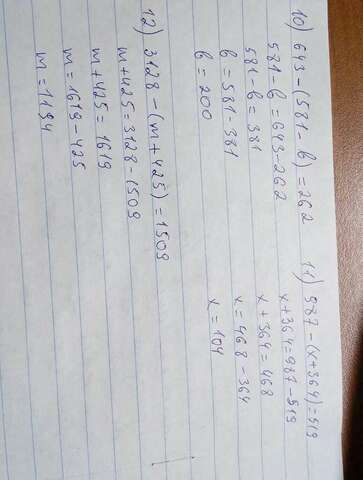 10) 643-(581-b)=262
581-b=643-262
581-b=381
b=581-381
b=200
11) 987-(x+364)=519
x+364=987-519
x+364=468
x=468-364
x=104
12) 3128-(m+425)=1509
m+425=3128-1509
m+425=1619
m=1619-425
m=1194